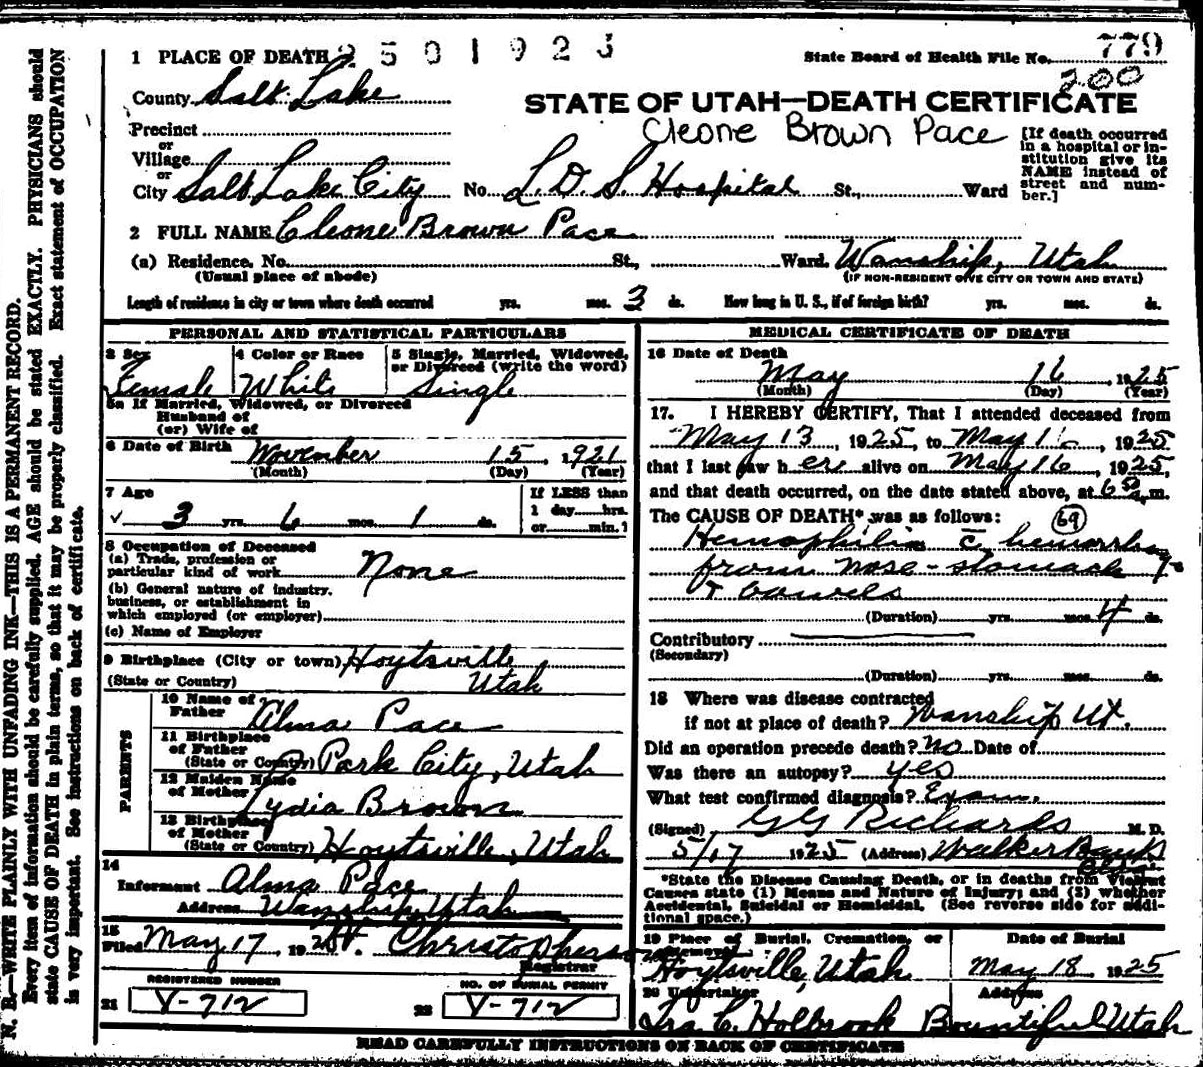 1 PLACE OF DEATH 2501923
State Board of Health File No. 779
200
County Salt Lake
STATE OF UTAH—DEATH CERTIFICATE
Cleone Brown Pace
Precinct
or
Village
or
City Salt Lake City No. L. D. S. Hospital St., Ward
[If death occurred
in a hospital or in-
stitution give its
NAME instead of
street and num-
ber.]
2 FULL NAME Cleone Brown Pace
(a) Residence. No. St., Ward. Wanship, Utah
(Usual place of abode) (IF NON-RESIDENT GIVE CITY OR TOWN AND STATE)
Length of residence in city or town where death occurred yrs. mos. 3 ds. How long in U. S., if of foreign birth? yrs. mos. ds.
PERSONAL AND STATISTICAL PARTICULARS
3 Sex 4 Color or Race 5 Single, Married, Widowed,
or Divorced (write the word)
Female White Single
5a If Married, Widowed, or Divorced
Husband of
(or) Wife of
6 Date of Birth November 15, 1921
(Month) (Day) (Year)
7 Age
3 yrs. 6 mos. 1 ds.
If LESS than
1 day hrs.
or min.?
8 Occupation of Deceased
(a) Trade, profession or
particular kind of work None
(b) General nature of industry,
business, or establishment in
which employed (or employer)
(c) Name of Employer
9 Birthplace (City or town) Hoytsville,
(State or Country) Utah
PARENTS
10 Name of
Father Alma Pace
11 Birthplace
of Father
(State or Country) Park City, Utah
12 Maiden Name
of Mother Lydia Brown
13 Birthplace
of Mother
(State or Country) Hoytsville, Utah
14
Informant Alma Pace
Address Wanship, Utah
15
Filed May 17 1925
Registrar
REGISTERED NUMBER NO. OF BURIAL PERMIT
21 V-712 22 V-712
MEDICAL CERTIFICATE OF DEATH
16 Date of Death
May 16, 1925
(Month) (Day) (Year)
17. I HEREBY CERTIFY, That I attended deceased from
May 13, 1925, to May 16, 1925
that I last saw her alive on May 16, 1925,
and that death occurred, on the date stated above, at 6 50 a.m.
The CAUSE OF DEATH* was as follows: 69
Hemophilia c̄ hemorrhage
from nose - stomach
+ bowels
(Duration) yrs. mos. 4 ds.
Contributory
(Secondary)
(Duration) yrs. mos. ds.
18 Where was disease contracted
if not at place of death? Wanship Ut.
Did an operation precede death? no Date of
Was there an autopsy? yes
What test confirmed diagnosis? Exam.
(Signed) G G Richards M. D.
5/17 1925 (Address) Walker Bank
Bldg
*State the Disease Causing Death, or in deaths from Violent
Causes state (1) Means and Nature of Injury; and (2) whether
Accidental, Suicidal or Homicidal. (See reverse side for addi-
tional space.)
19 Place of Burial, Cremation, or Date of Burial
Hoytsville, Utah May 18 1925
20 Undertaker Address
Ira C. Holbrook Bountiful Utah
READ CAREFULLY INSTRUCTIONS ON BACK OF CERTIFICATE
N. B.—WRITE PLAINLY WITH UNFADING INK—THIS IS A PERMANENT RECORD.
Every item of information should be carefully supplied. AGE should be stated EXACTLY. PHYSICIANS should
state CAUSE OF DEATH in plain terms, so that it may be properly classified. Exact statement of OCCUPATION
is very important. See instructions on back of certificate.